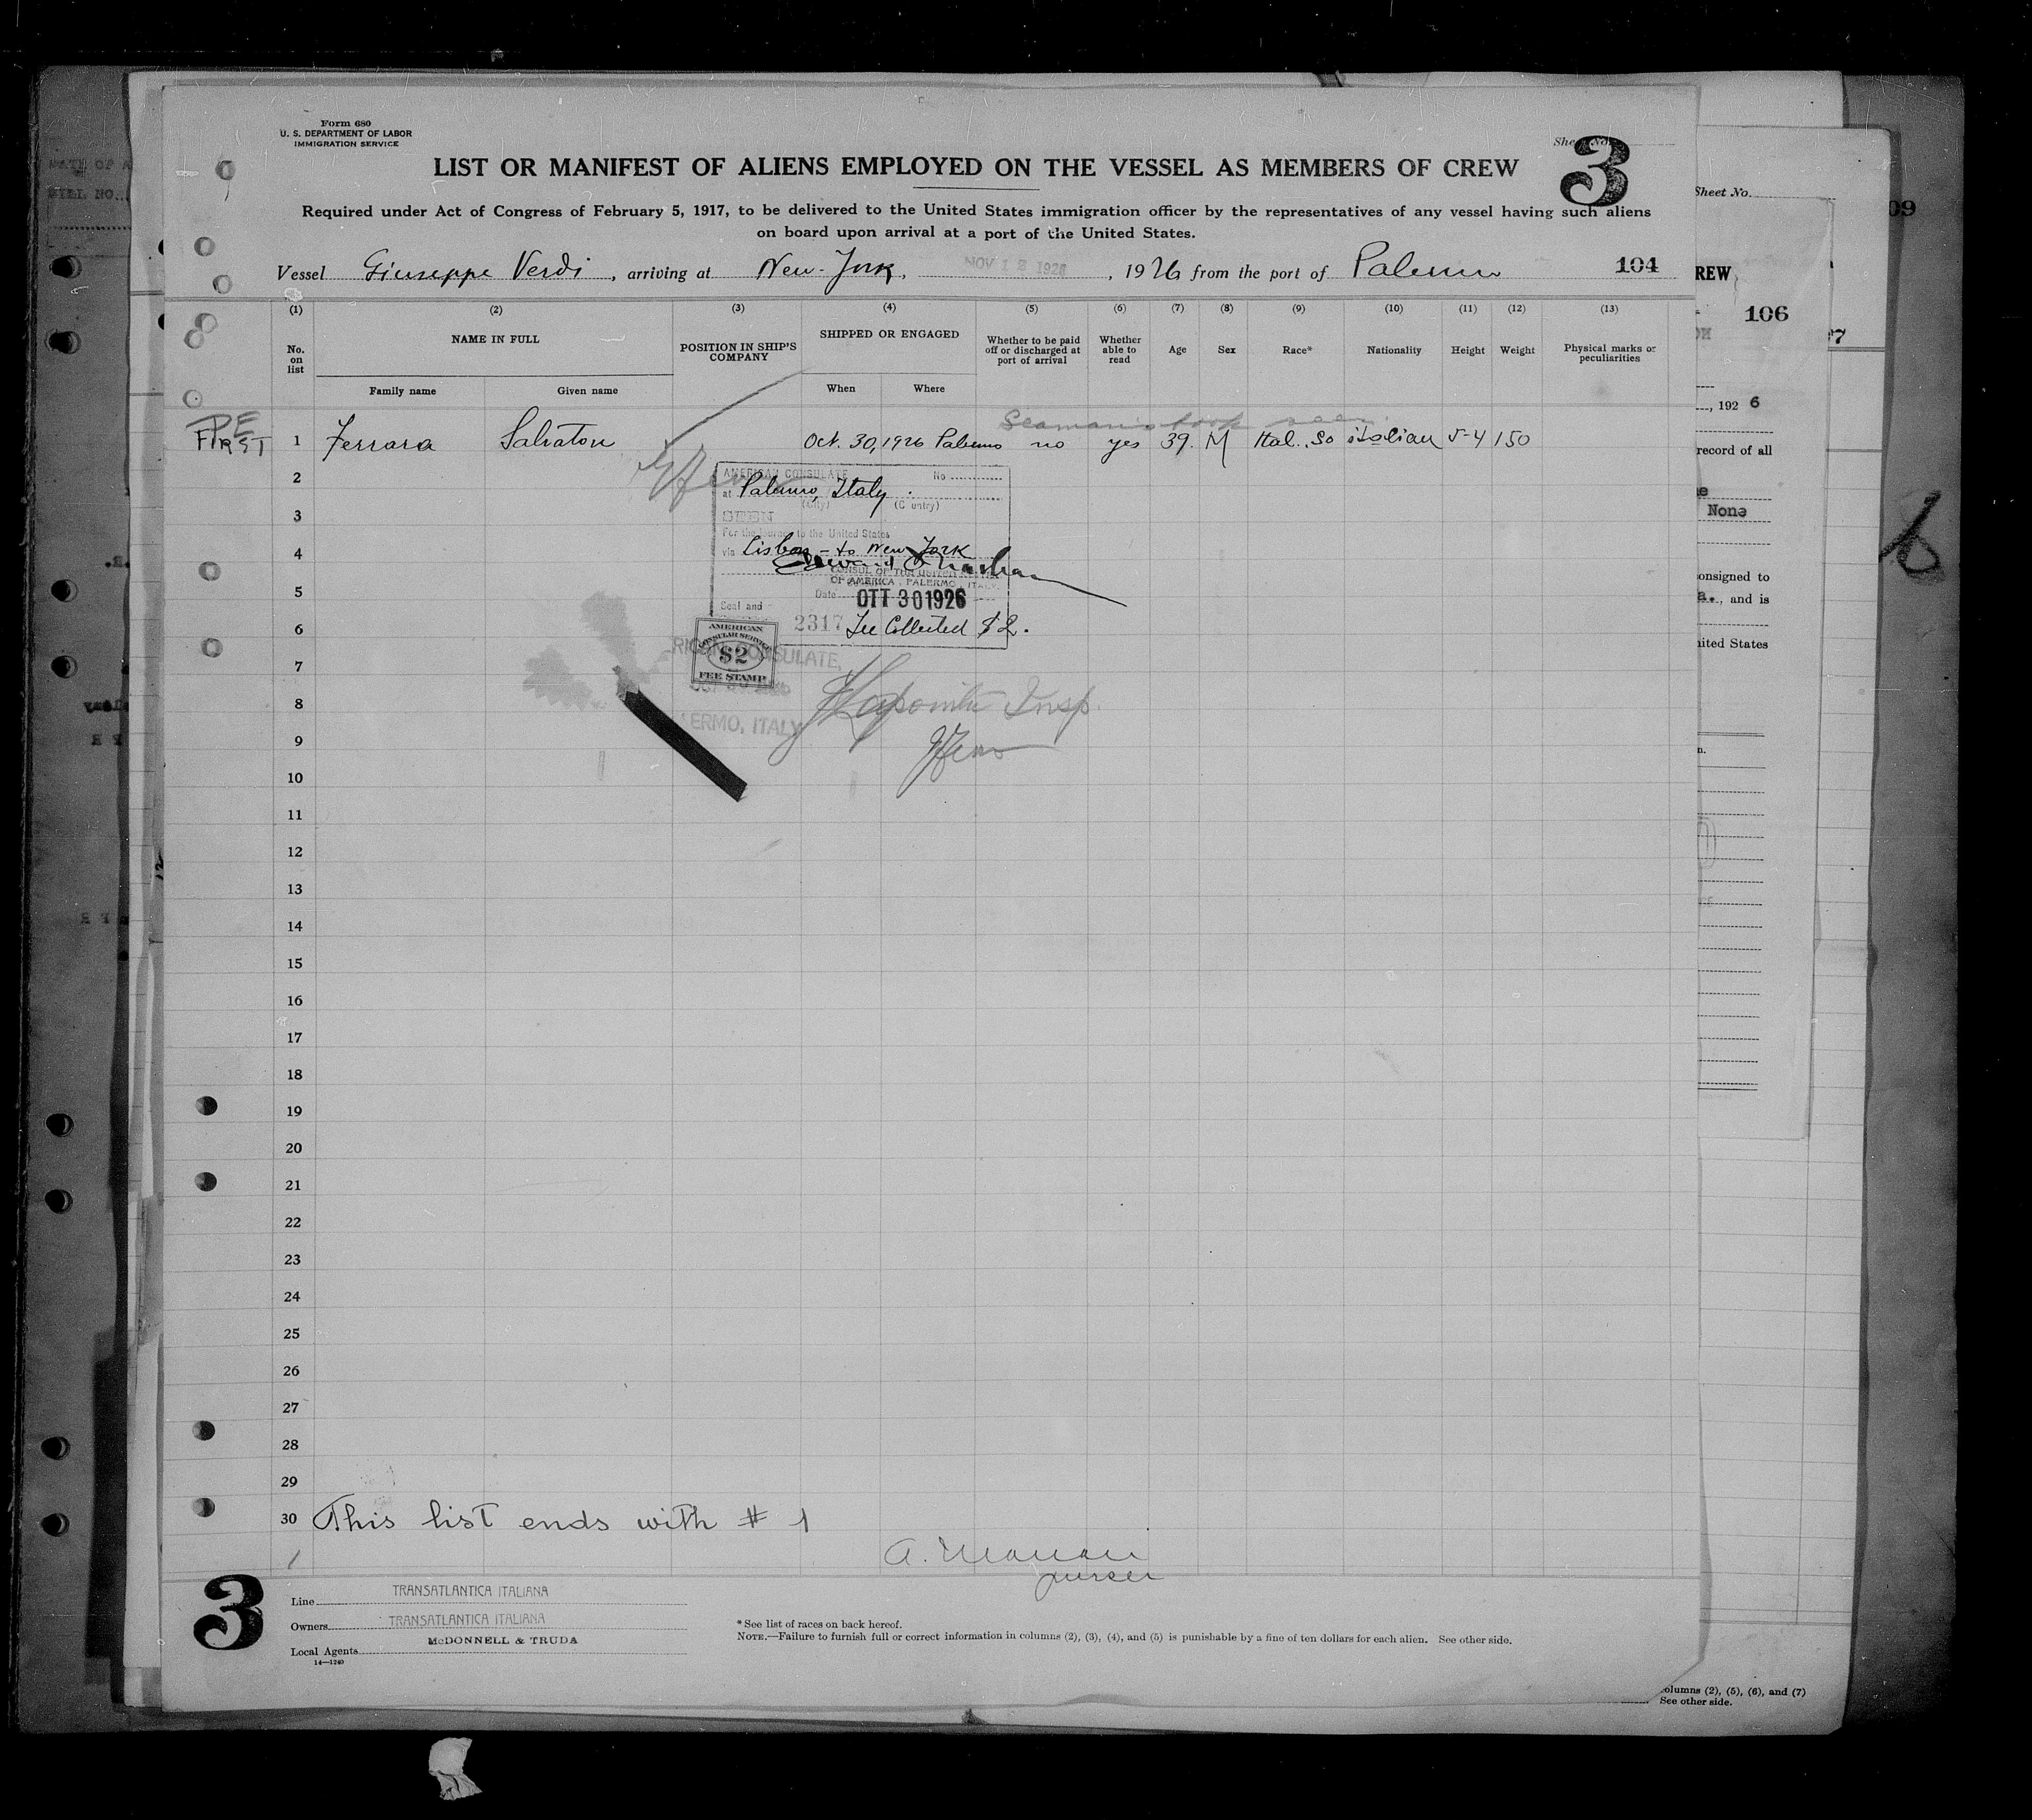 Form 680
U. S. DEPARTMENT OF LABOR
IMMIGRATION SERVICE
Sheet No.
3
LIST OR MANIFEST OF ALIENS EMPLOYED ON THE VESSEL AS MEMBERS OF CREW
Required under Act of Congress of February 5, 1917, to be delivered to the United States immigration officer by the representatives of any vessel having such aliens
on board upon arrival at a port of the United States.
Vessel Giuseppe Verdi, arriving at New-York, NOV 12 1926, 1926 from the port of Palermo
104
(1) (2) (3) (4) (5) (6) (7) (8) (9) (10) (11) (12) (13)
No. on list
NAME IN FULL
Family name Given name
POSITION IN SHIP'S COMPANY
SHIPPED OR ENGAGED
When Where
Whether to be paid off or discharged at port of arrival
Whether able to read
Age
Sex
Race*
Nationality
Height
Weight
Physical marks or peculiarities
Seaman's book seen
FIRST
1 Ferrara Salvatore Oct. 30, 1926 Palermo no yes 39 M Ital. So italian 5-4 150
2
AMERICAN CONSULATE No
at Palermo, Italy.
(City) (Country)
3
SEEN
For the journey to the United States
4
via Lisbon - to New York
CONSUL OF THE UNITED STATES
OF AMERICA, PALERMO, ITALY
5
Date OTT 30 1926
Seal and
6
2317 Fee Collected $2.
AMERICAN
CONSULAR SERVICE
$2
FEE STAMP
7
RICAN CONSULATE,
8
Insp.
ERMO, ITALY
9
10
11
12
13
14
15
16
17
18
19
20
21
22
23
24
25
26
27
28
29
30 This list ends with # 1
purser
3
Line TRANSATLANTICA ITALIANA
Owners TRANSATLANTICA ITALIANA
Local Agents McDONNELL & TRUDA
14—1240
* See list of races on back hereof.
NOTE.—Failure to furnish full or correct information in columns (2), (3), (4), and (5) is punishable by a fine of ten dollars for each alien. See other side.
Sheet No.
09
REW
106
, 192 6
record of all
None
onsigned to
a., and is
nited States
olumns (2), (5), (6), and (7)
See other side.